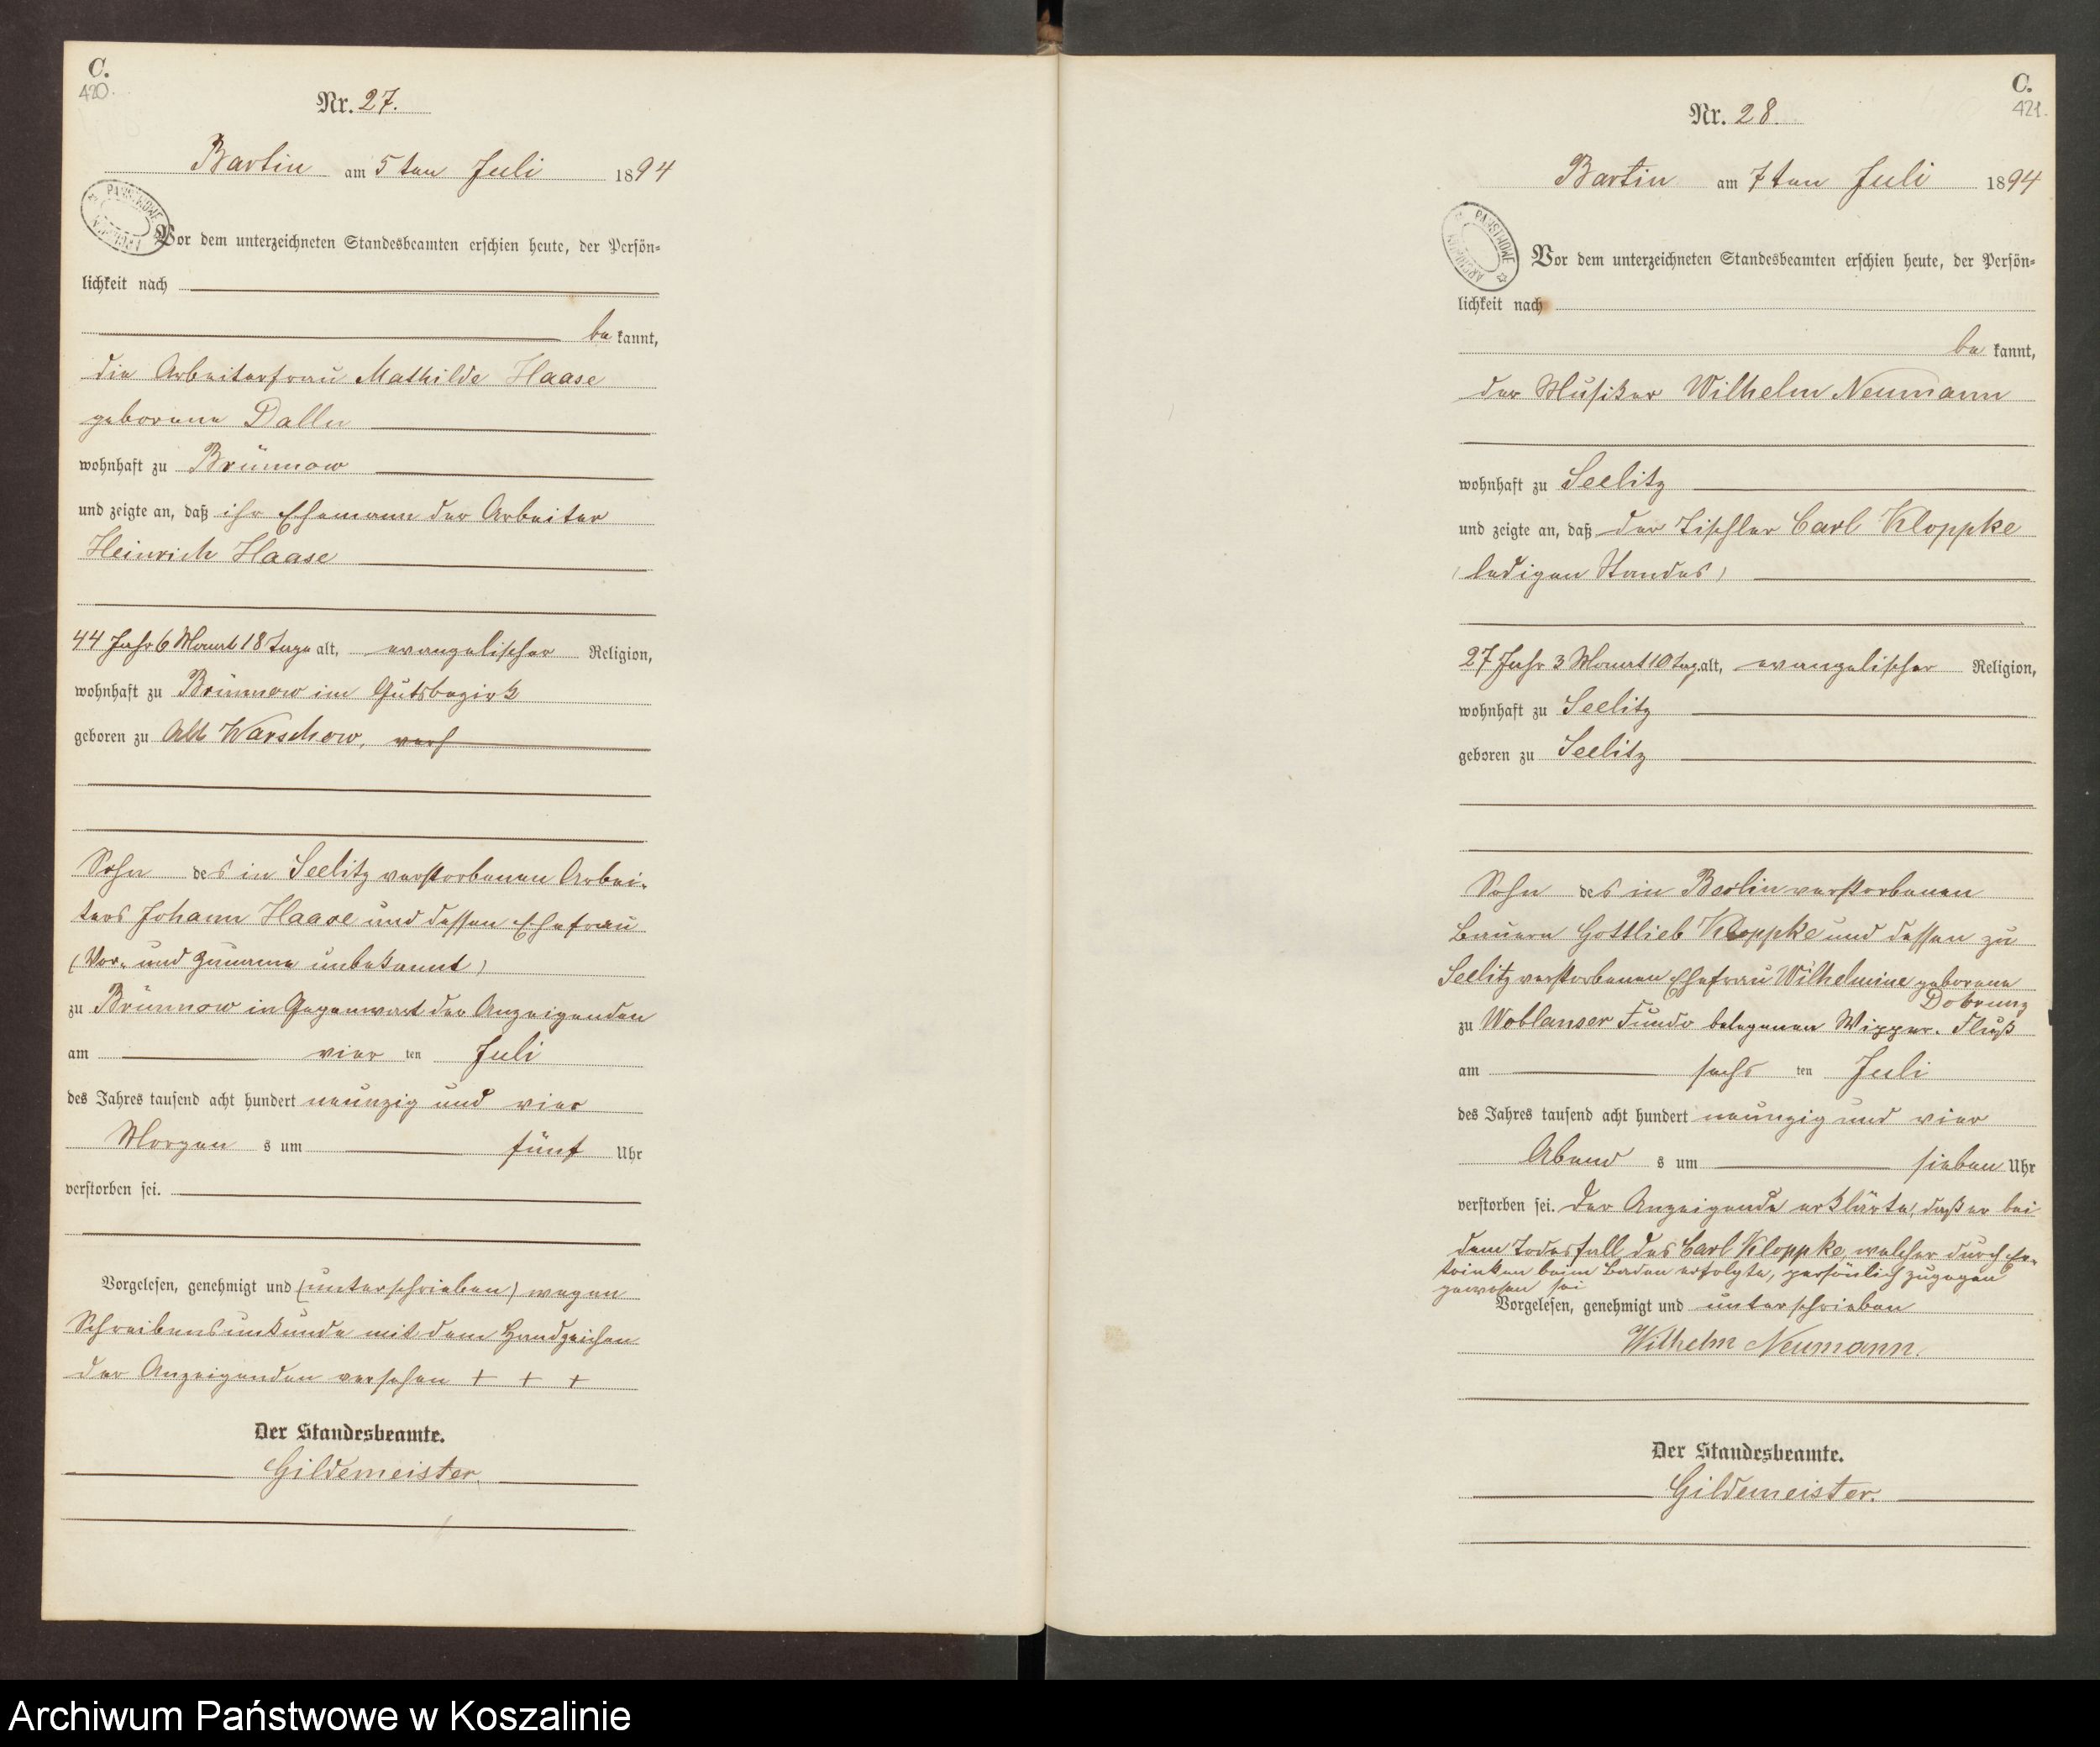 C.
420.
Nr. 27.
Bartin am 5ten Juli 1894
PAŃSTWOWE ARCHIWUM
Vor dem unterzeichneten Standesbeamten erschien heute, der Persön-
lichkeit nach
be kannt,
die Arbeiterfrau Mathilde Haase
geborene
wohnhaft zu Brünnow
und zeigte an, daß ihr Ehemann der Arbeiter
Heinrich Haase
44 Jahr 6 Monat 18 Tage alt, evangelischer Religion,
wohnhaft zu Brünnow im Gutsbezirk
geboren zu Alt Warschow,
Sohn des in Seelitz verstorbenen Arbei-
ters Johann Haase und dessen Ehefrau
(Vor- und Zuname unbekannt)
zu Brünnow in Gegenwart der Anzeigenden
am vier ten Juli
des Jahres tausend acht hundert neunzig und vier
Morgen s um fünf Uhr
verstorben sei.
Vorgelesen, genehmigt und (unterschrieben) wegen
Schreibensunkunde mit dem Handzeichen
der Anzeigenden versehen + + +
Der Standesbeamte.
Gildemeister.
C.
421.
Nr. 28.
Bartin am 7ten Juli 1894
PAŃSTWOWE ARCHIWUM
Vor dem unterzeichneten Standesbeamten erschien heute, der Persön-
lichkeit nach
be kannt,
der Musiker Wilhelm Neumann
wohnhaft zu Seelitz
und zeigte an, daß der Tischler Carl Kloppke
(ledigen Standes)
27 Jahr 3 Monat 10 Tag alt, evangelischer Religion,
wohnhaft zu Seelitz
geboren zu Seelitz
Sohn des in Berlin verstorbenen
Bauern Gottlieb Kloppke und dessen zu
Seelitz verstorbenen Ehefrau Wilhelmine geborene
Dobrunz
zu Woblanser Fundo belegenen Wipper-Fluß
am sechs ten Juli
des Jahres tausend acht hundert neunzig und vier
Abend s um sieben Uhr
verstorben sei. Der Anzeigende erklärte, daß er bei
dem Todesfall des Carl Kloppke, welcher durch Er-
trinken beim Baden erfolgte, persönlich zugegen
gewesen sei
Vorgelesen, genehmigt und unterschrieben
Wilhelm Neumann.
Der Standesbeamte.
Gildemeister.
Archiwum Państwowe w Koszalinie